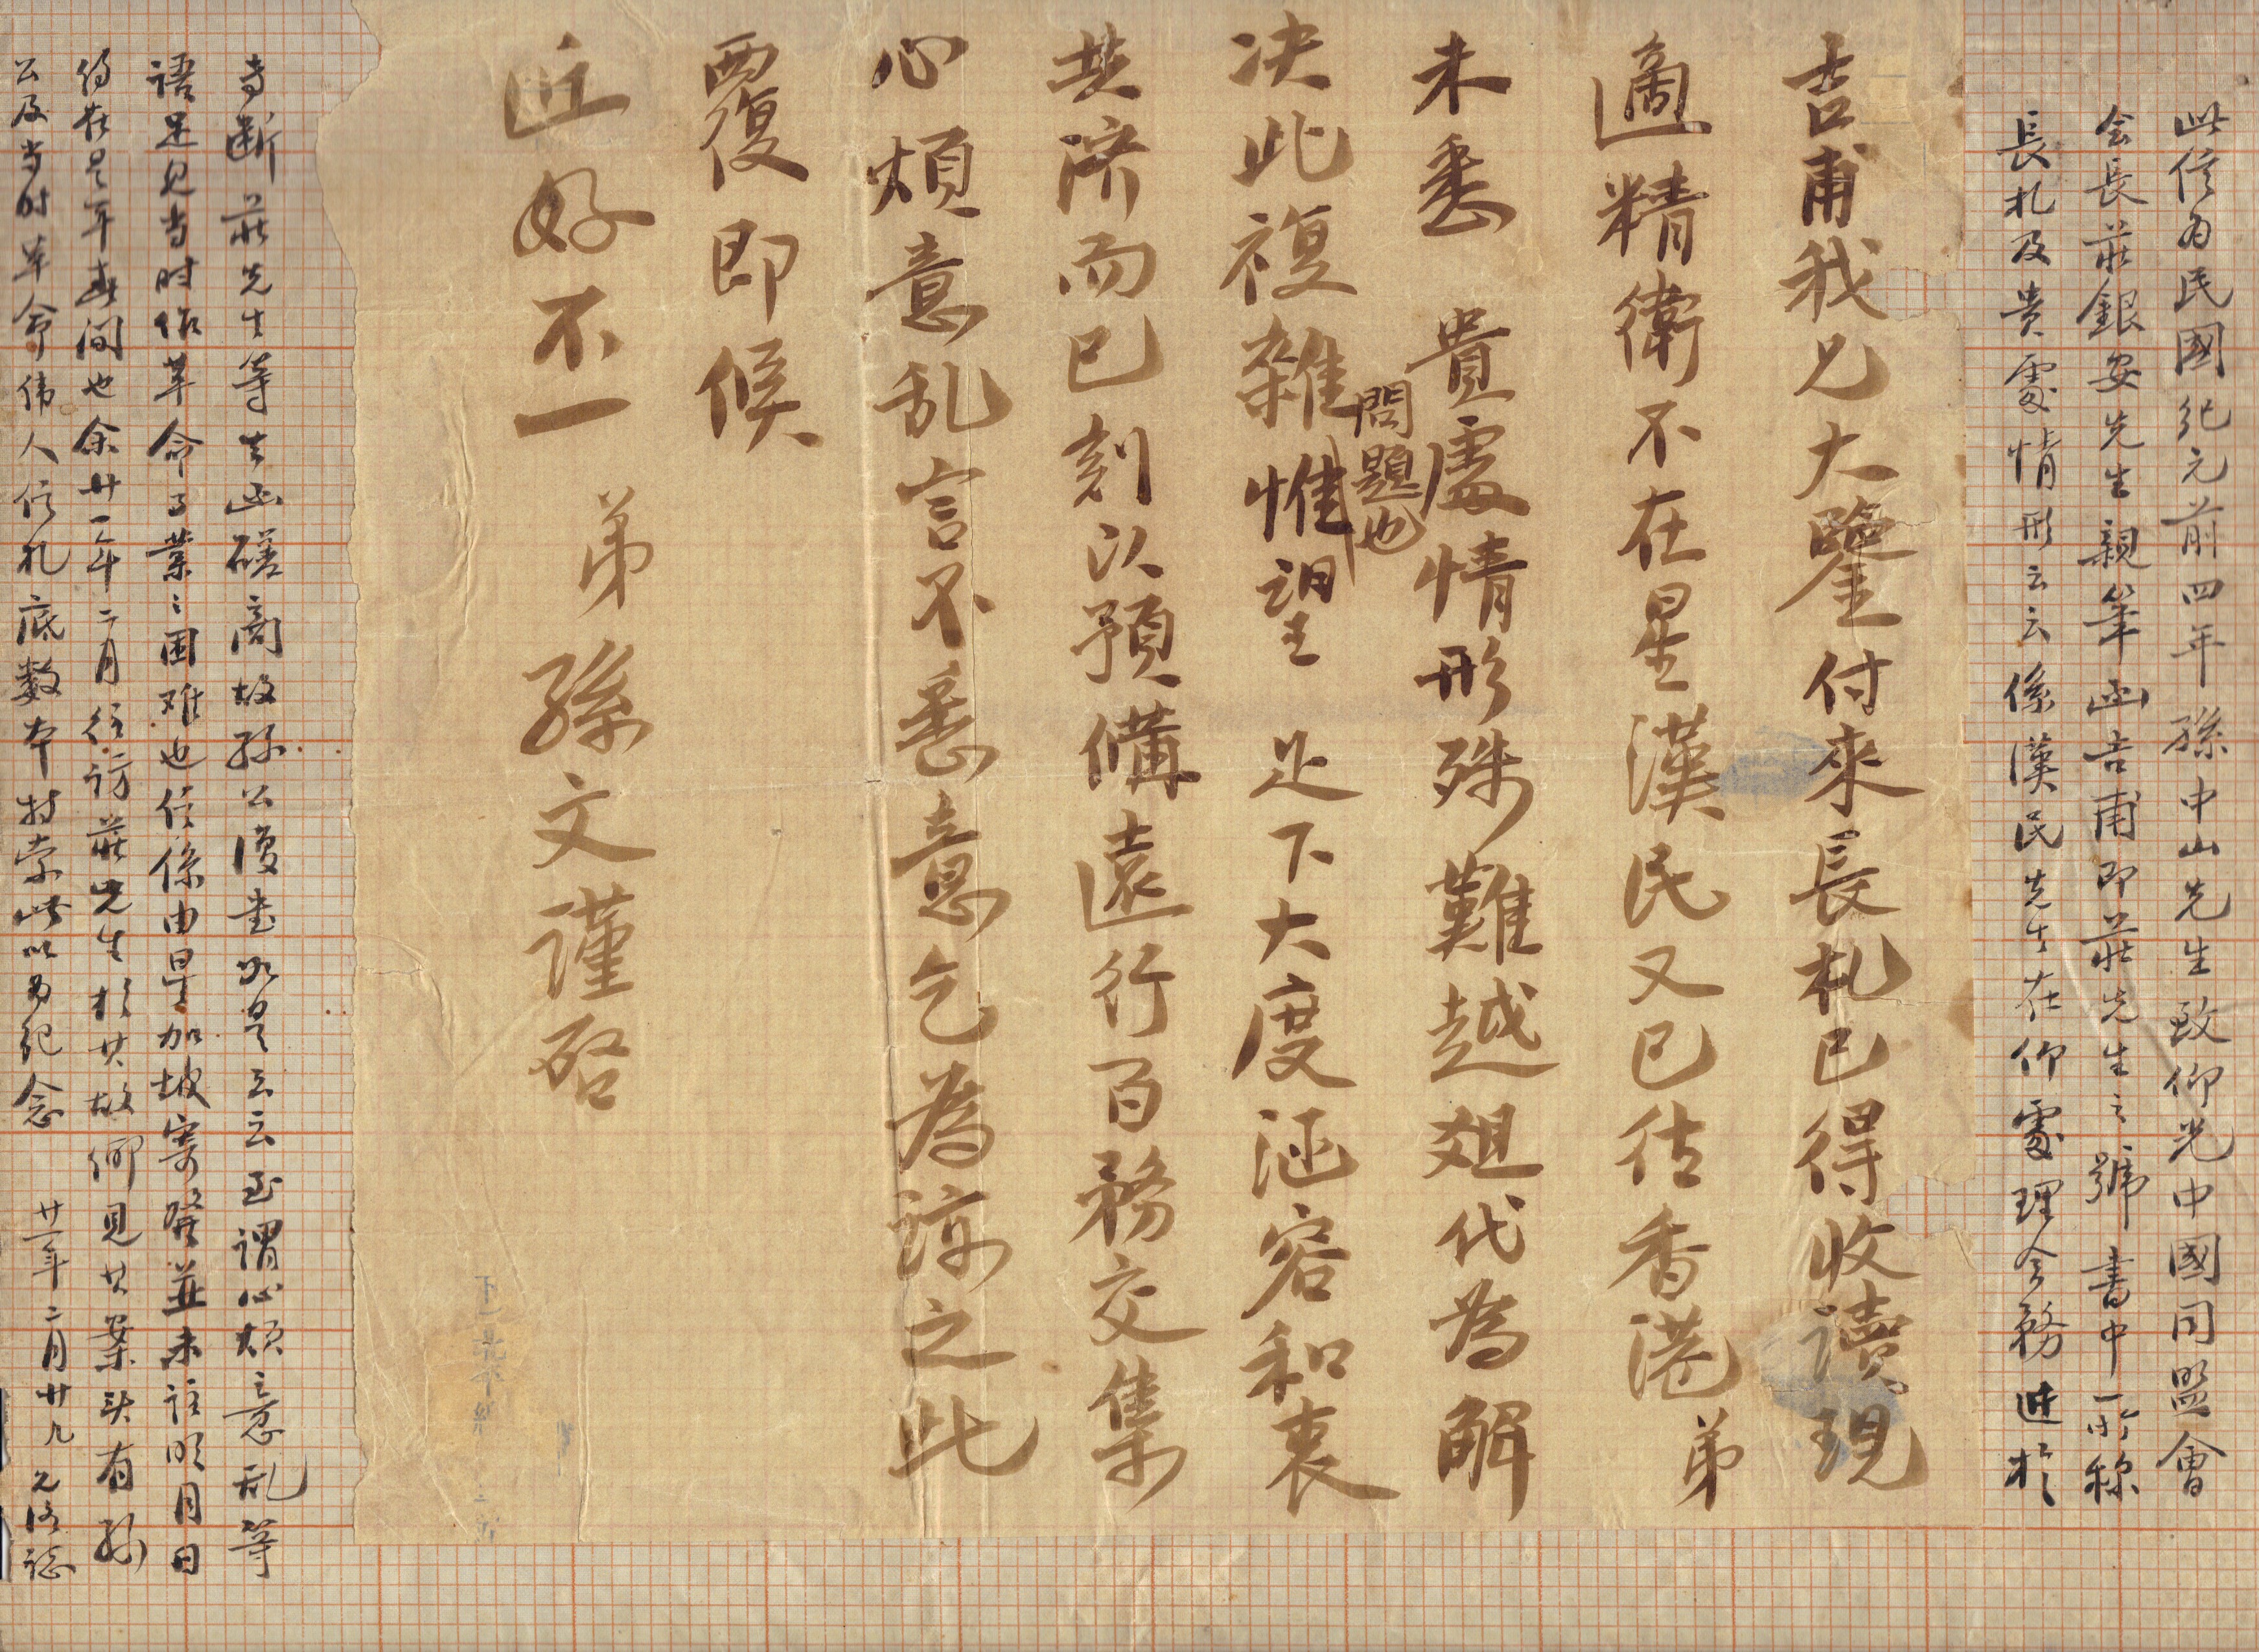 此信为民國紀元前四年孫中山先生致仰光中國同盟會
会長莊銀安先生親筆函吉甫即莊先生之號書中所称
長札及贵處情形云云係漢民先生在仰處理会務进於
吉甫我兄大鑒付來長札已得收讀現
適精衛不在星漢民又已往香港弟
未悉貴處情形殊難越俎代為解
決此複雜問題也惟望足下大度涵容和衷
共济而已刻以預備遠行百務交集
心煩意乱言不悉意乞為諒之此
覆即候
近好不一
弟孫文謹啓
专断莊先生等去函磋商故孙公復书如是云云至谓心烦意乱等
语足见当时作革命事業之困难也信係由星加坡寄發並未註明月日
但在是年春间也余廿一年二月往访莊先生於其故鄉見其案头有孙
公及当时革命伟人信札底数本特索此以为纪念
廿一年二月廿九